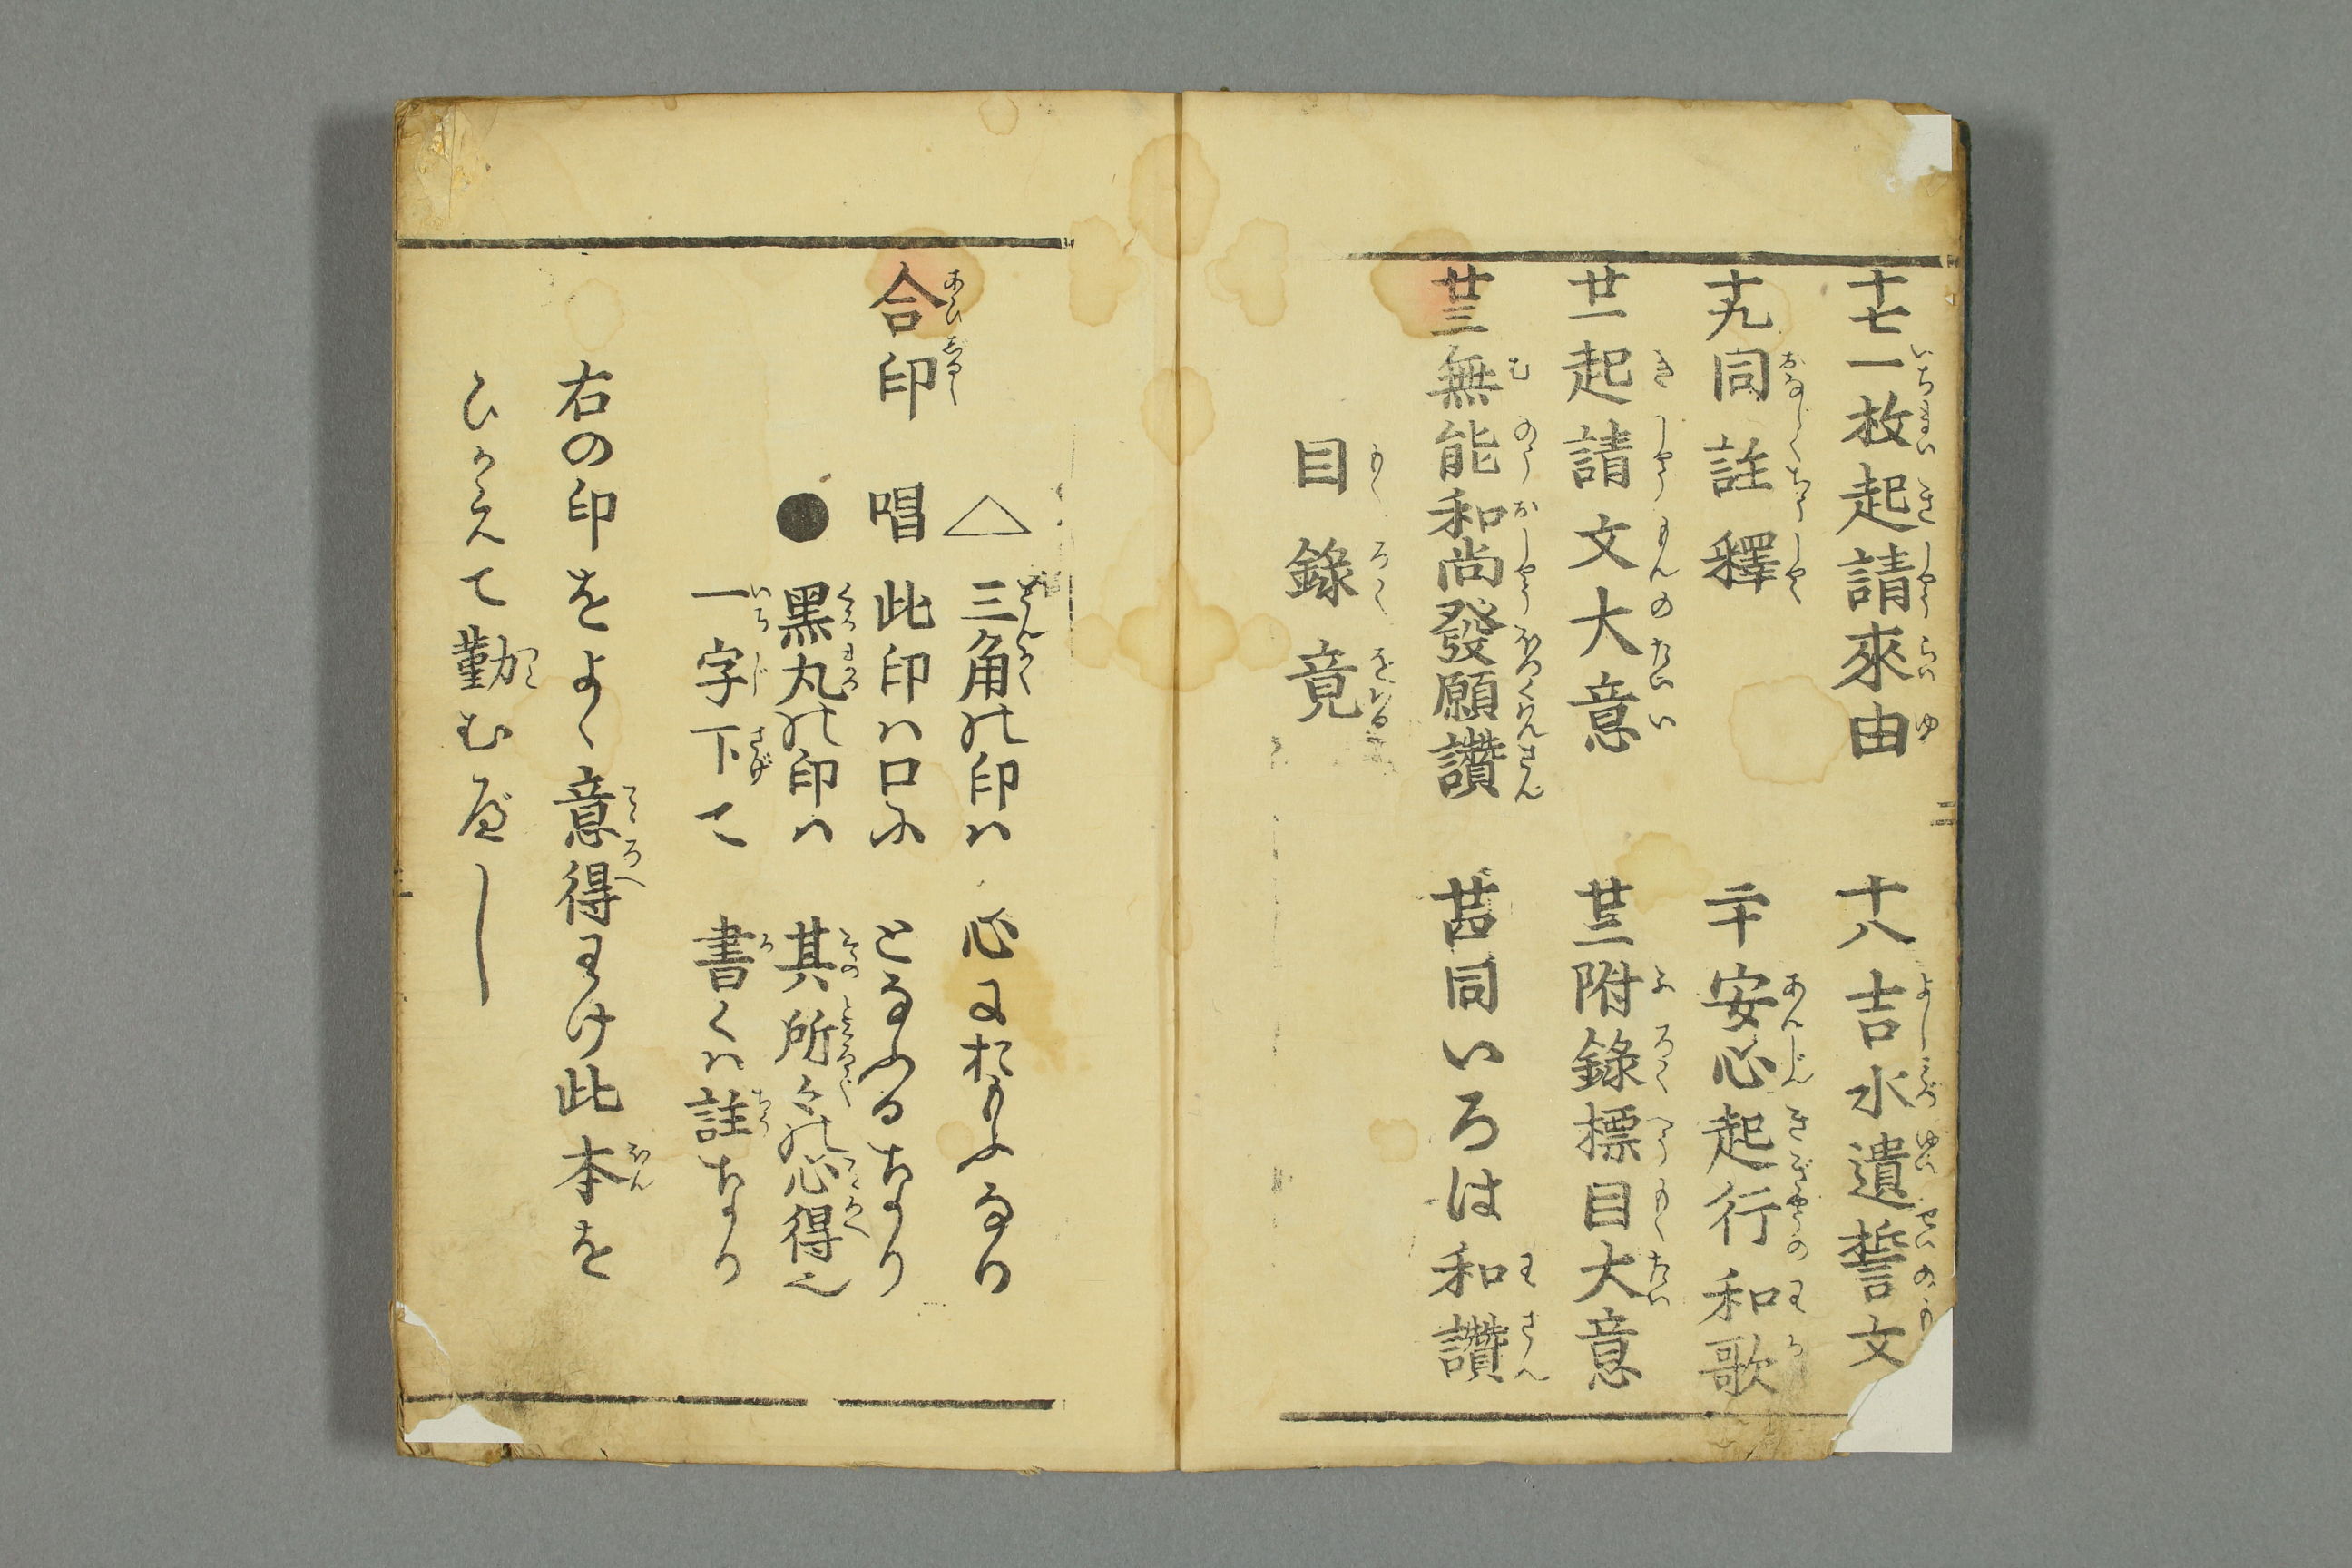 十七一枚起請來由　十八吉水遺誓文
十九同註釋　二十安心起行和歌
廿一起請文大意　廿二附錄標目大意
廿三無能和尚發願讚　廿四同いろは和讚
目錄竟
二
合印
△　三角の印ハ　心に
唱　此印ハ口に　となふるなり
●　黑丸の印ハ　其所々の心得也
一字下こ　書くハ註なり
右の印をよく意得わけ此本を
ひかえて勤むべし